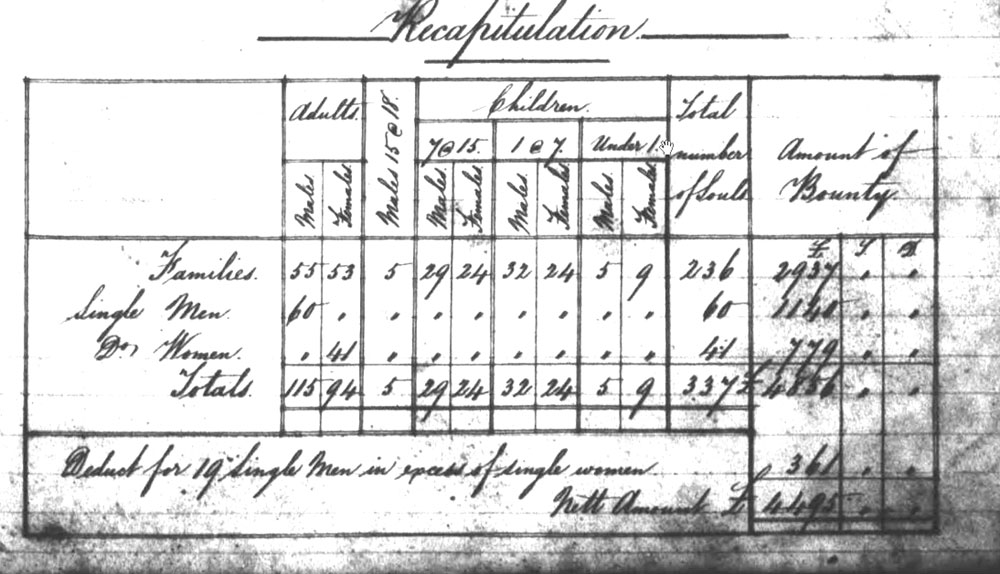 Recapitulation.
Adults. Males 15@18. Children. Total number of Souls Amount of Bounty.
7@15. 1@7. Under 1.
Males Females Males Females Males Females Males Females
£ S D
Families. 55 53 5 29 24 32 24 5 9 236 2937 " "
Single Men. 60 " " " " " " " " 60 1140 " "
Do, Women. " 41 " " " " " " " 41 779 " "
Totals. 115 94 5 29 24 32 24 5 9 337 £ 4856 " "
Deduct for 19 Single Men in excess of single women 361 " "
Nett Amount £ 4495 " "